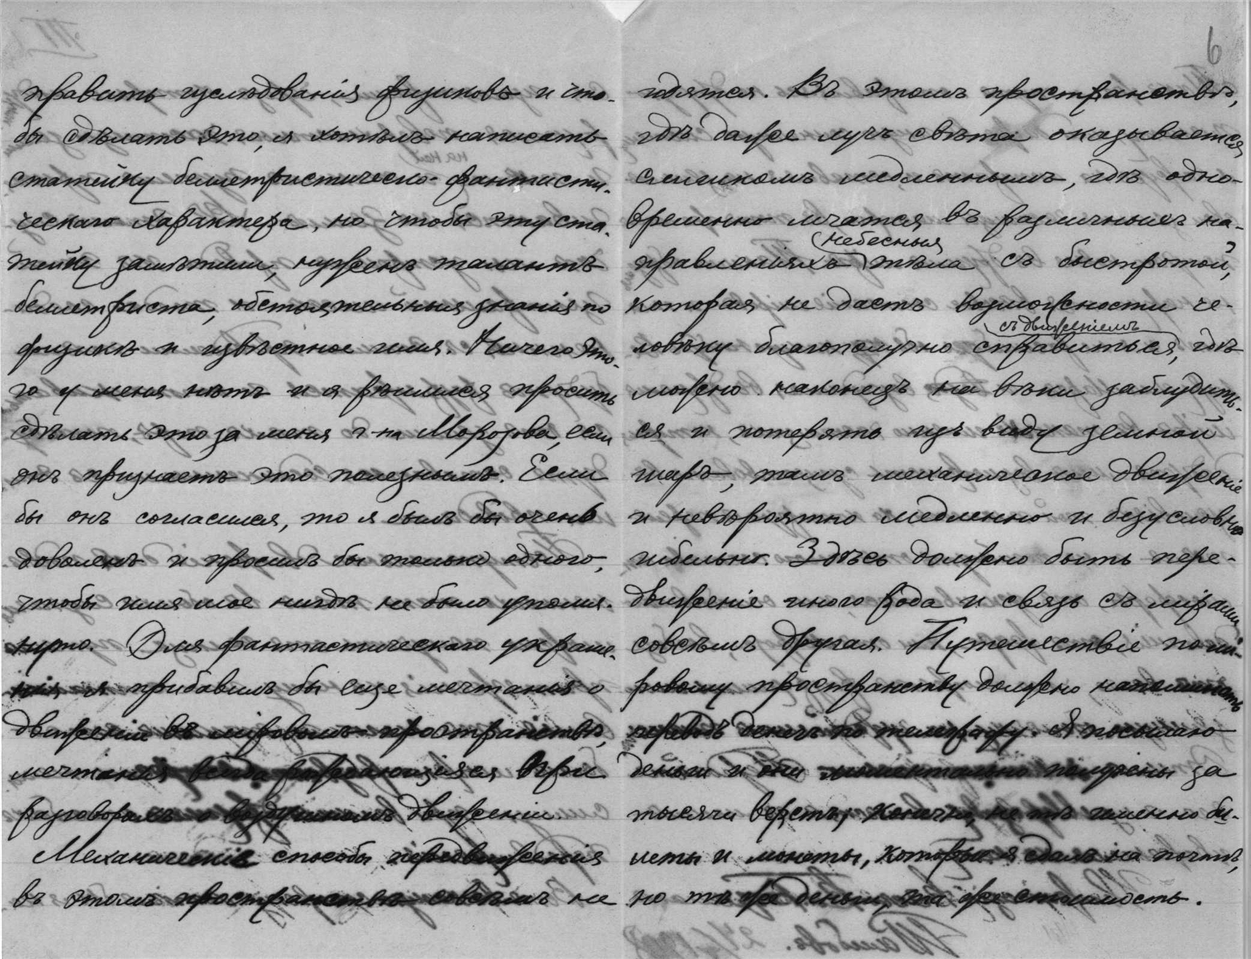 править изслѣдованія физиковъ и что-
бы сдѣлать это, я хотѣлъ написать
статейку беллетристическо-фантасти-
ческаго характера, но чтобы эту ста-
тейку замѣтили, нуженъ талантъ
беллетриста, обстоятельныя знанія по
физикѣ и извѣстное имя. Ничего это-
го у меня нѣтъ и я рѣшился просить
сдѣлать это за меня г-на Морозова, если
онъ признаетъ это полезнымъ. Если
бы онъ согласился, то я былъ бы очень
доволенъ и просилъ бы только одного,
чтобы имя мое нигдѣ не было упомя-
нуто. Для фантастическаго украше-
нія я прибавилъ бы еще мечтанія о
движеніи въ міровомъ пространствѣ,
мечтанія всегда при
разговорахъ о воздушномъ движеніи.
Механическіе способы передвиженія
въ этомъ пространствѣ совсѣмъ не
6
годятся. Въ этомъ пространствѣ,
гдѣ даже лучъ свѣта оказывается
слишкомъ медленнымъ, гдѣ одно-
временно мчатся въ различныхъ на-
правленіяхъ небесныя тѣла съ быстротой,
которая не дастъ возможности че-
ловѣку благополучно справиться съ движеніемъ, гдѣ
можно наконецъ на вѣки заблудить-
ся и потерять изъ виду земной
шаръ, тамъ механическое движеніе
и невѣроятно медленно и безусловно
гибельно. Здѣсь должно быть пере-
движеніе иного рода и связь съ мірами
совсѣмъ другая. Путешествіе по ми-
ровому пространству должно напоминать
переводъ денегъ по телеграфу. Я посылаю
деньги и они моментально получены за
тысячи верстъ, конечно, не тѣ именно би-
леты и монеты, которые я сдалъ на почтѣ,
но тѣ же деньги, та же стоимость.